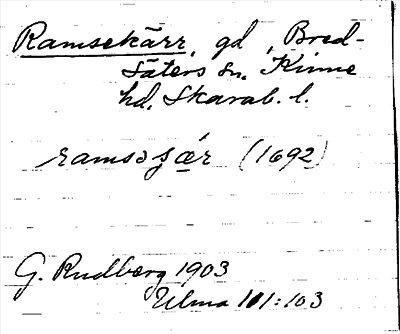 Ramsekärr, gd, Bred-
säters sn, Kinne
hd, Skarab. l.
(1692)
G. Rudberg 1903
Ulma 101:103